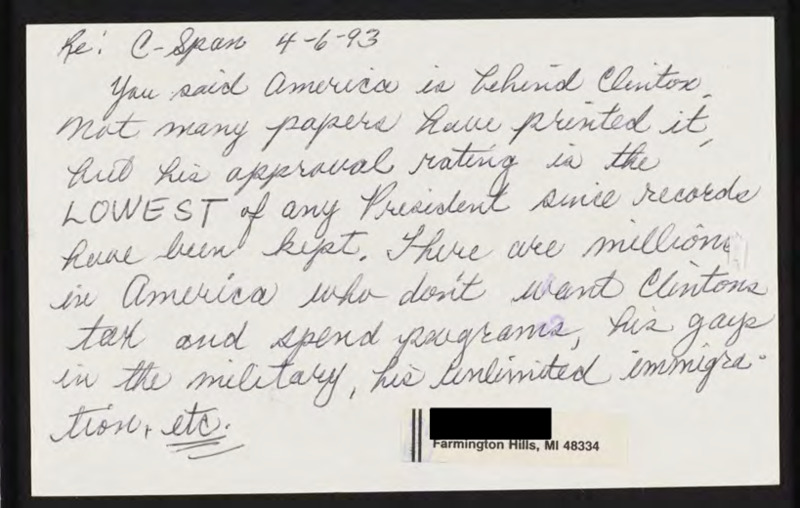 Re: C-Span 4-6-93
You said America is behind Clinton.
Not many papers have printed it,
but his approval rating is the
LOWEST of any President since records
have been kept. There are millions
in America who don't want Clintons
tax and spend programs, his gays
in the military, his unlimited immigra-
tion, etc.
Farmington Hills, MI 48334